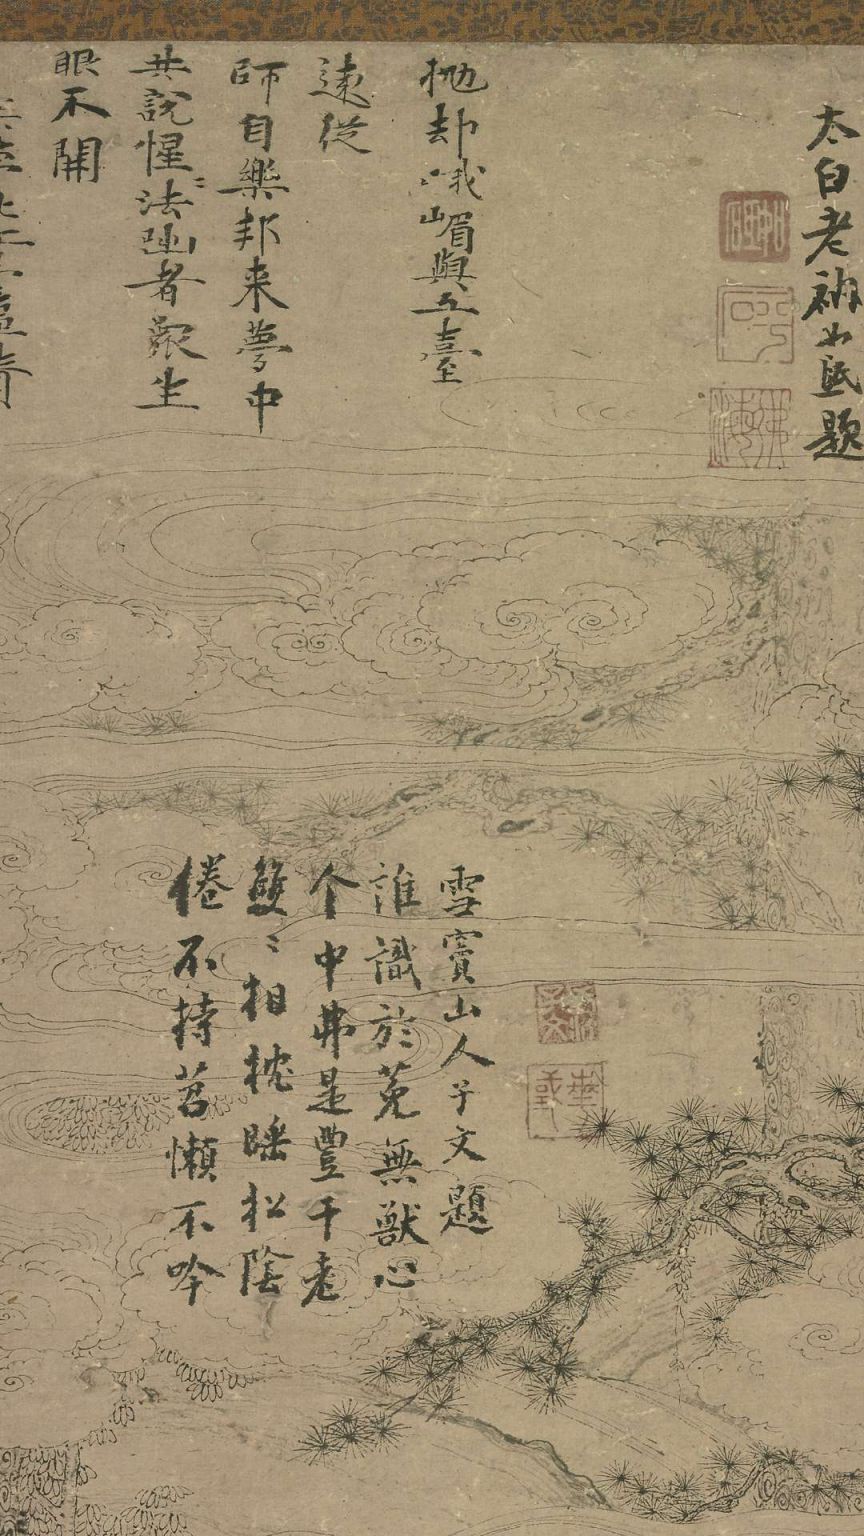 太白老衲如砥題
抛却峨嵋與五臺
遠從
師自樂邦来夢中
共説惺〻法者衆生
眼不開
倦不持苕懶不吟
雙〻相枕睡松陰
个中弗是豐干老
誰識於菟無獣心
雪竇山人子文題